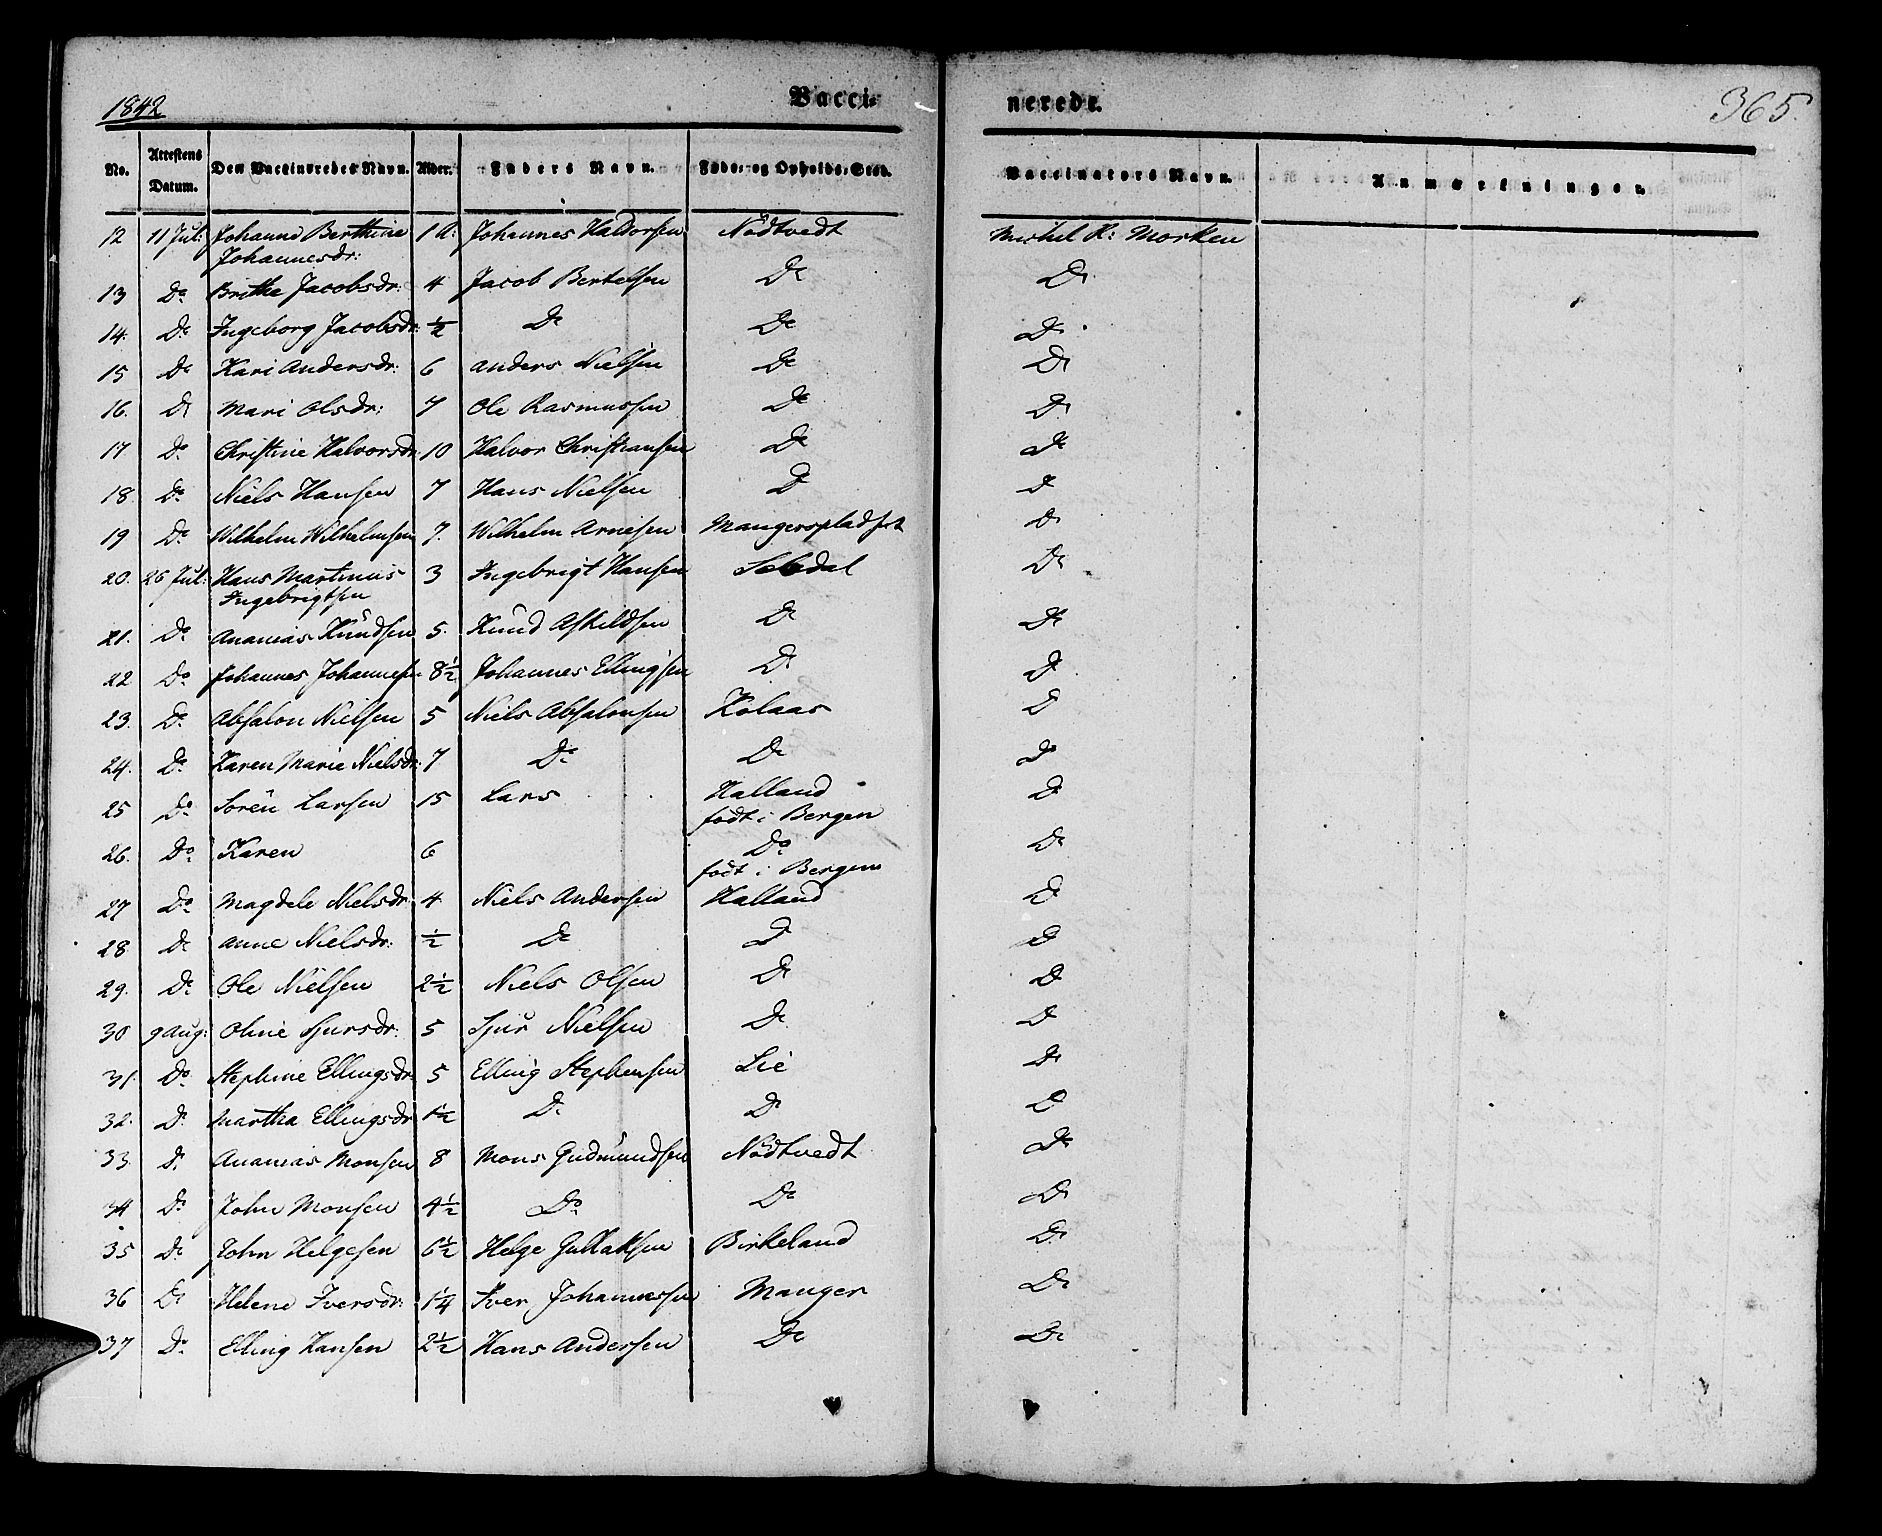 1842 Vacci= nerede. 365.
No. Attestens Datum. Den Vaccineredes Navn. Alder. Faders Navn. Føde- og Opholds-Sted. Vaccinators Navn. Anmærkninger.
12 11 Jul: Johanne Berthine 1 A: Johannes Haldorsen Nödtvedt Michel R: Morken
Johannesdr:
13 Do Brithe Jacobsdr: 4 Jacob Bertelsen Do Do
14. Do Ingeborg Jacobsdr: ½ Do Do Do
15 Do Kari Andersdr: 6 Anders Nielsen Do Do
16. Do Mari Olsdr: 7 Ole Rasmussen Do Do
17 Do Christine Halvorsdr 10 Halvor Christiansen Do Do
18 Do Niels Hansen 7 Hans Nielsen Do Do
19 Do Wilhelm Wilhelmsen 7. Wilhelm Arnesen Mangerspladset Do
20. 26 Jul: Hans Martinus 3 Ingebrigt Hansen Do
Ingebrigtsen
21. Do Ananias Knudsen 5. Knud Askildsen Do Do
22 Do Johannes Johannesen 8½ Johannes Ellingsen Do Do
23. Do Absalon Nielsen 5 Niels Absalonsen Kolaas Do
24. Do Karen Marie Nielsdr: 7 Do Do Do
25 Do Sören Larsen 15 Lars Halland Do
födt i Bergen
26. Do Karen 6 Do Do
födt i Bergen
27 Do Magdele Nielsdr. 4 Niels Andersen Halland Do
28 Do Anne Nielsdr: ½ Do Do Do
29. Do Ole Nielsen 2½ Niels Olsen Do Do
30 9 Aug: Oline Sjursdr. 5 Sjur Nielsen Do Do
31. Do Stephine Ellingsdr 5 Elling Stephensen Lie Do
32. Do Martha Ellingsdr 1½ Do Do Do
33 Do Ananias Monsen 8 Mons Gudmundsen Nödtvedt Do
34 Do John Monsen 4½ Do Do Do
35 Do John Helgesen 6½ Helge Gullaksen Birkeland Do
36 Do Helene Iversdr: 1¼ Iver Johannessen Manger Do
37 Do Elling Hansen 2½ Hans Andersen Do Do